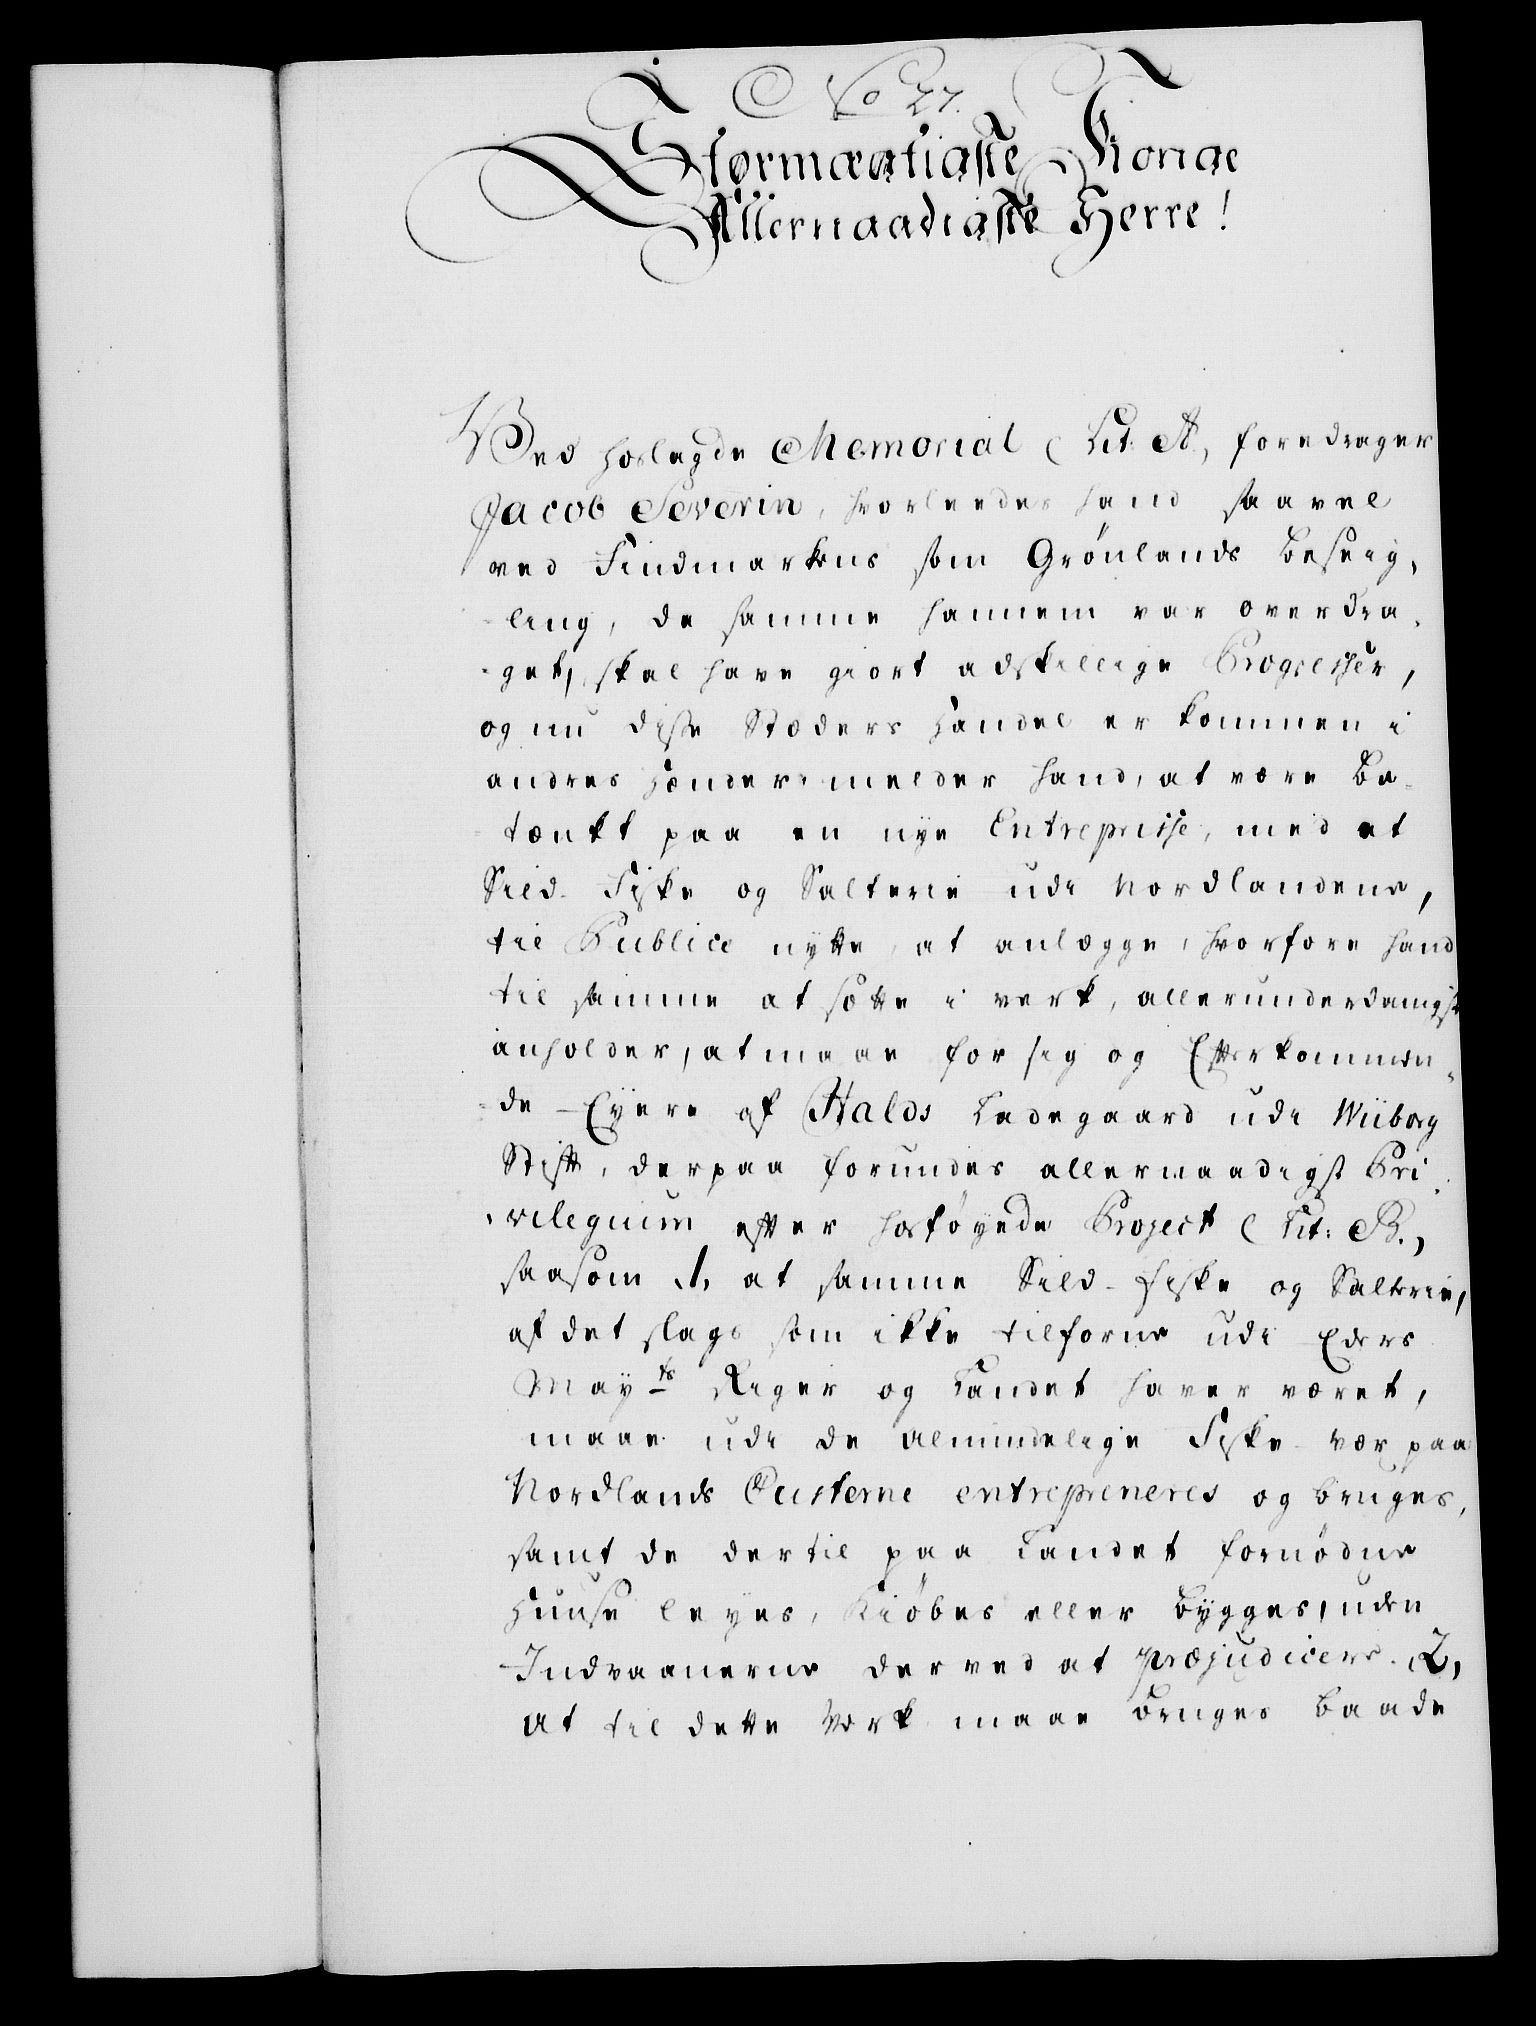 No 27.
Stormægtigste Konge
Allernaadigste Herre!
Ved hoslagde Memorial (Lit. A, foredrager
Jacob Severin, hvorleedes hand saavel
ved Findmarkens som Grönlands Beseig,
-ling, da samme hannem var overdra,
-get, skal have giort adskillige Progresser,
og nu disse Stæders Handel er kommen i
andres Hænder, melder hand, at være be-
tænkt paa en nye Entreprisse, med et
Sild-Fiske og Salterie udi Nordlandene,
til Publici nytte, at anlægge, hvorfore hand
til samme at sætte i verk, allerunderdanigst
anholder, at maae for sig og Efterkommen,
-de Eyere af Halds Ladegaard udi Wiiborg
Stift, derpaa forundes allernaadigst Pri,
-vilegium efter hosföyede Project (Lit: B.,
saasom 1, at samme Sild-Fiske og Salterie,
af det slags som ikke tilforne udi Eders
Mayts Riger og Landet haver været,
maae udi de almindelige Fiske-Vær paa
Nordlands Custerne entrepreneres og bruges,
samt de dertil paa Landet fornödne
Huuse leyes, Kiöbes eller bygges, uden
Indvaanerne derved at præjudicere. 2,
at til dette Verk maae bruges baade